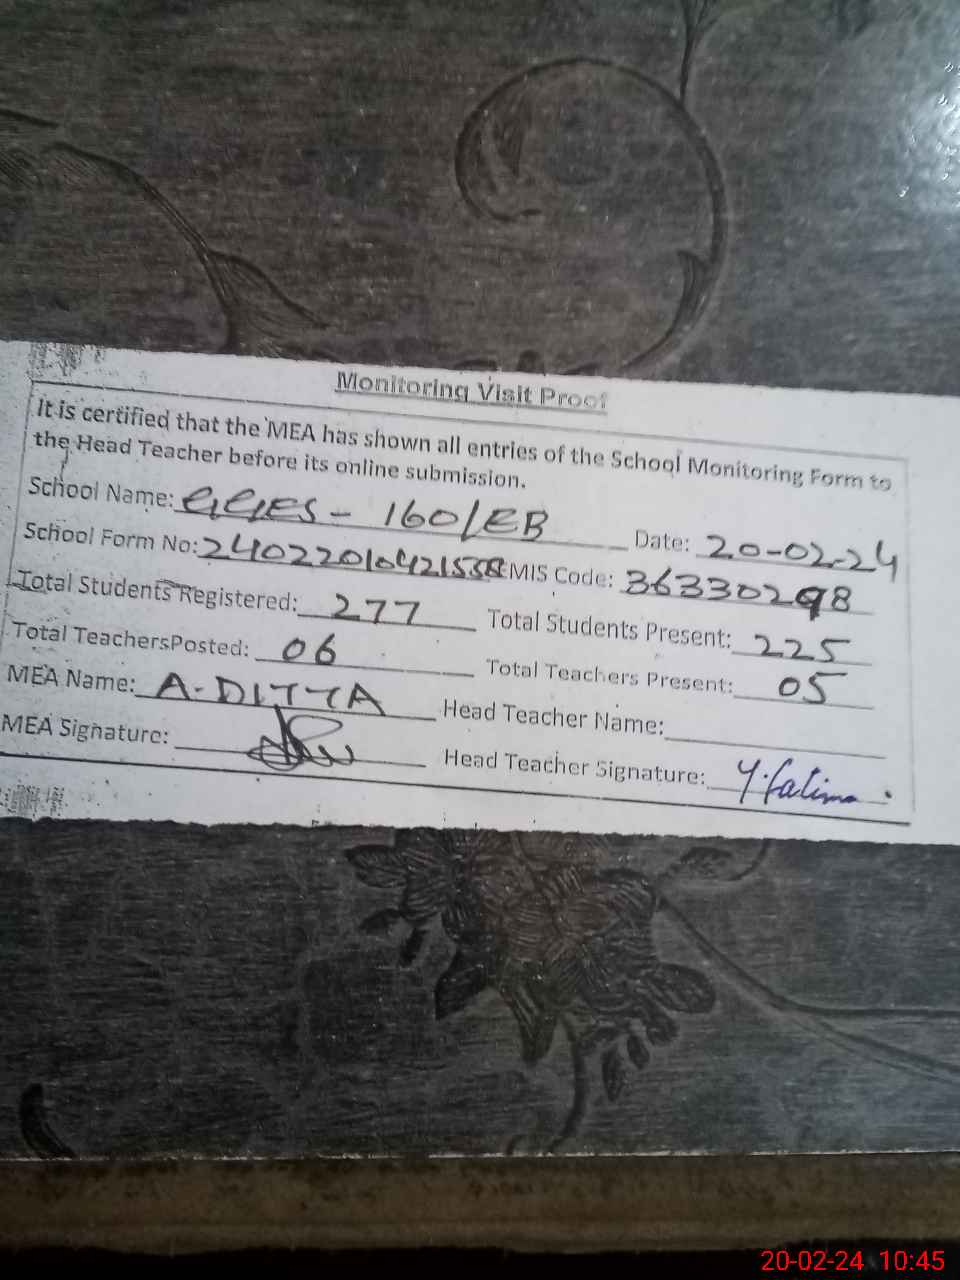 Monitoring Visit Proof
It is certified that the MEA has shown all entries of the School Monitoring Form to
the Head Teacher before its online submission.
School Name: GGES - 160/EB Date: 20-02-24
School Form No: EMIS Code: 36330298
Total Students Registered: 277 Total Students Present: 225
Total TeachersPosted: 06 Total Teachers Present: 05
MEA Name: A-DITTA Head Teacher Name:
MEA Signature: Head Teacher Signature: Y.fatima.
20-02-24 10:45